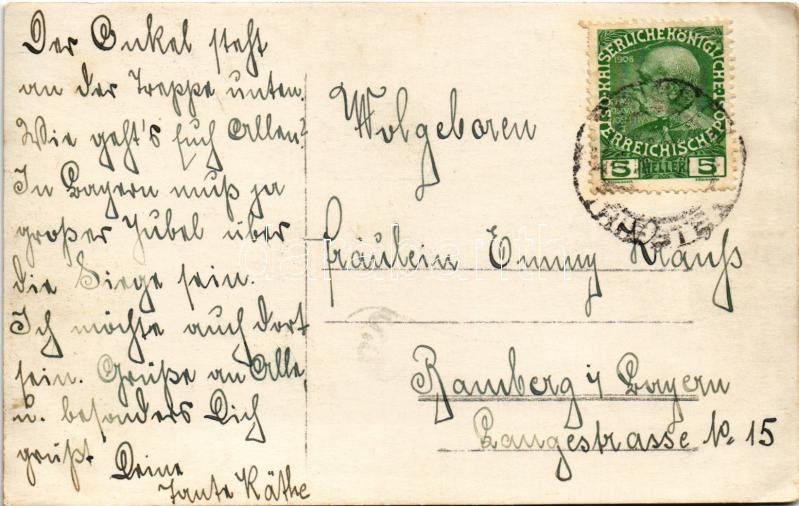 Der Onkel steht
an der Treppe unten.
Wie geht's Euch Allen?
In Bayern muß ja
großer Jubel über
die Siege sein.
Ich möchte auch dort
sein. Grüße an Alle,
u. besonders Dich
grüßt Deine
Tante Käthe
Wolgeboren
Fräulein Emmy Krauß
Bamberg i/ Bayern
Langestrasse No. 15
KAISERLICHEKÖNIGLICHE
ÖSTERREICHISCHEPOST
1908
5 HELLER 5
darabanth